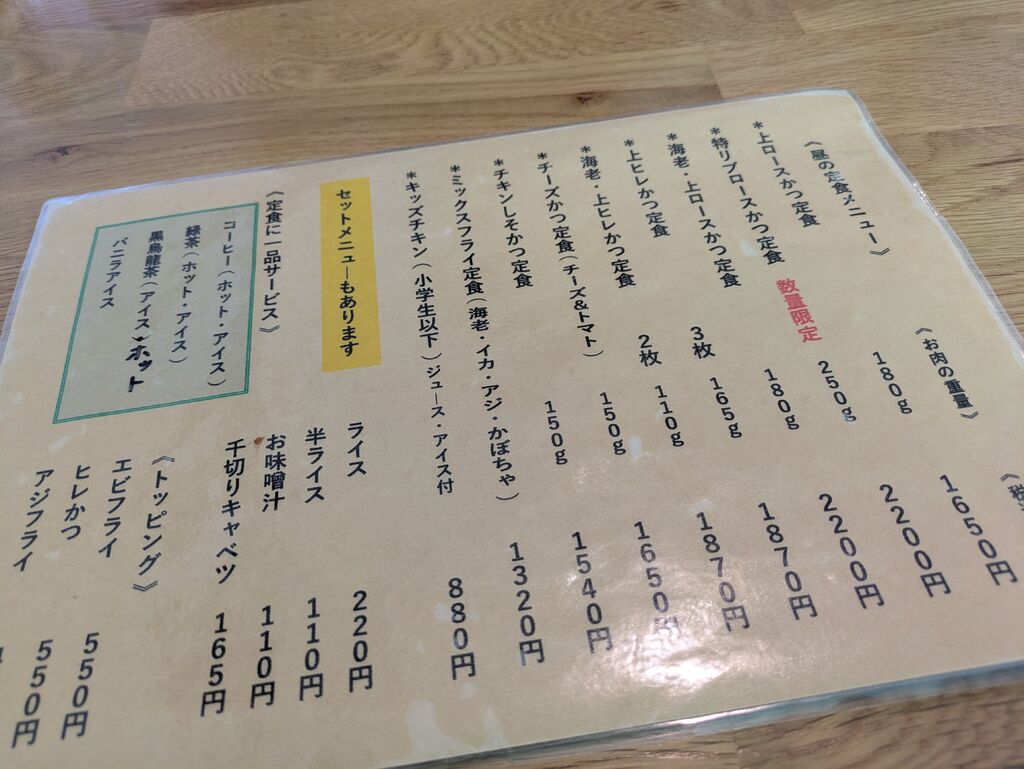 《昼の定食メニュー》 《お肉の重量》 《税
*上ロースかつ定食 180g 1650円
*特リブロースかつ定食 数量限定 250g 2200円
*海老・上ロースかつ定食 180g 2200円
*上ヒレかつ定食 3枚 165g 1870円
*海老・上ヒレかつ定食 2枚 110g 1870円
*チーズかつ定食(チーズ&トマト) 150g 1650円
*チキンしそかつ定食 150g 1540円
*ミックスフライ定食(海老・イカ・アジ・かぼちゃ) 1320円
*キッズチキン(小学生以下)ジュース・アイス付 880円
セットメニューもあります
ライス 220円
半ライス 110円
お味噌汁 110円
千切りキャベツ 165円
《定食に一品サービス》
コーヒー(ホット・アイス)
緑茶(ホット・アイス)
黒烏龍茶(アイス・ホット
バニラアイス
《トッピング》
エビフライ 550円
ヒレかつ 550円
アジフライ